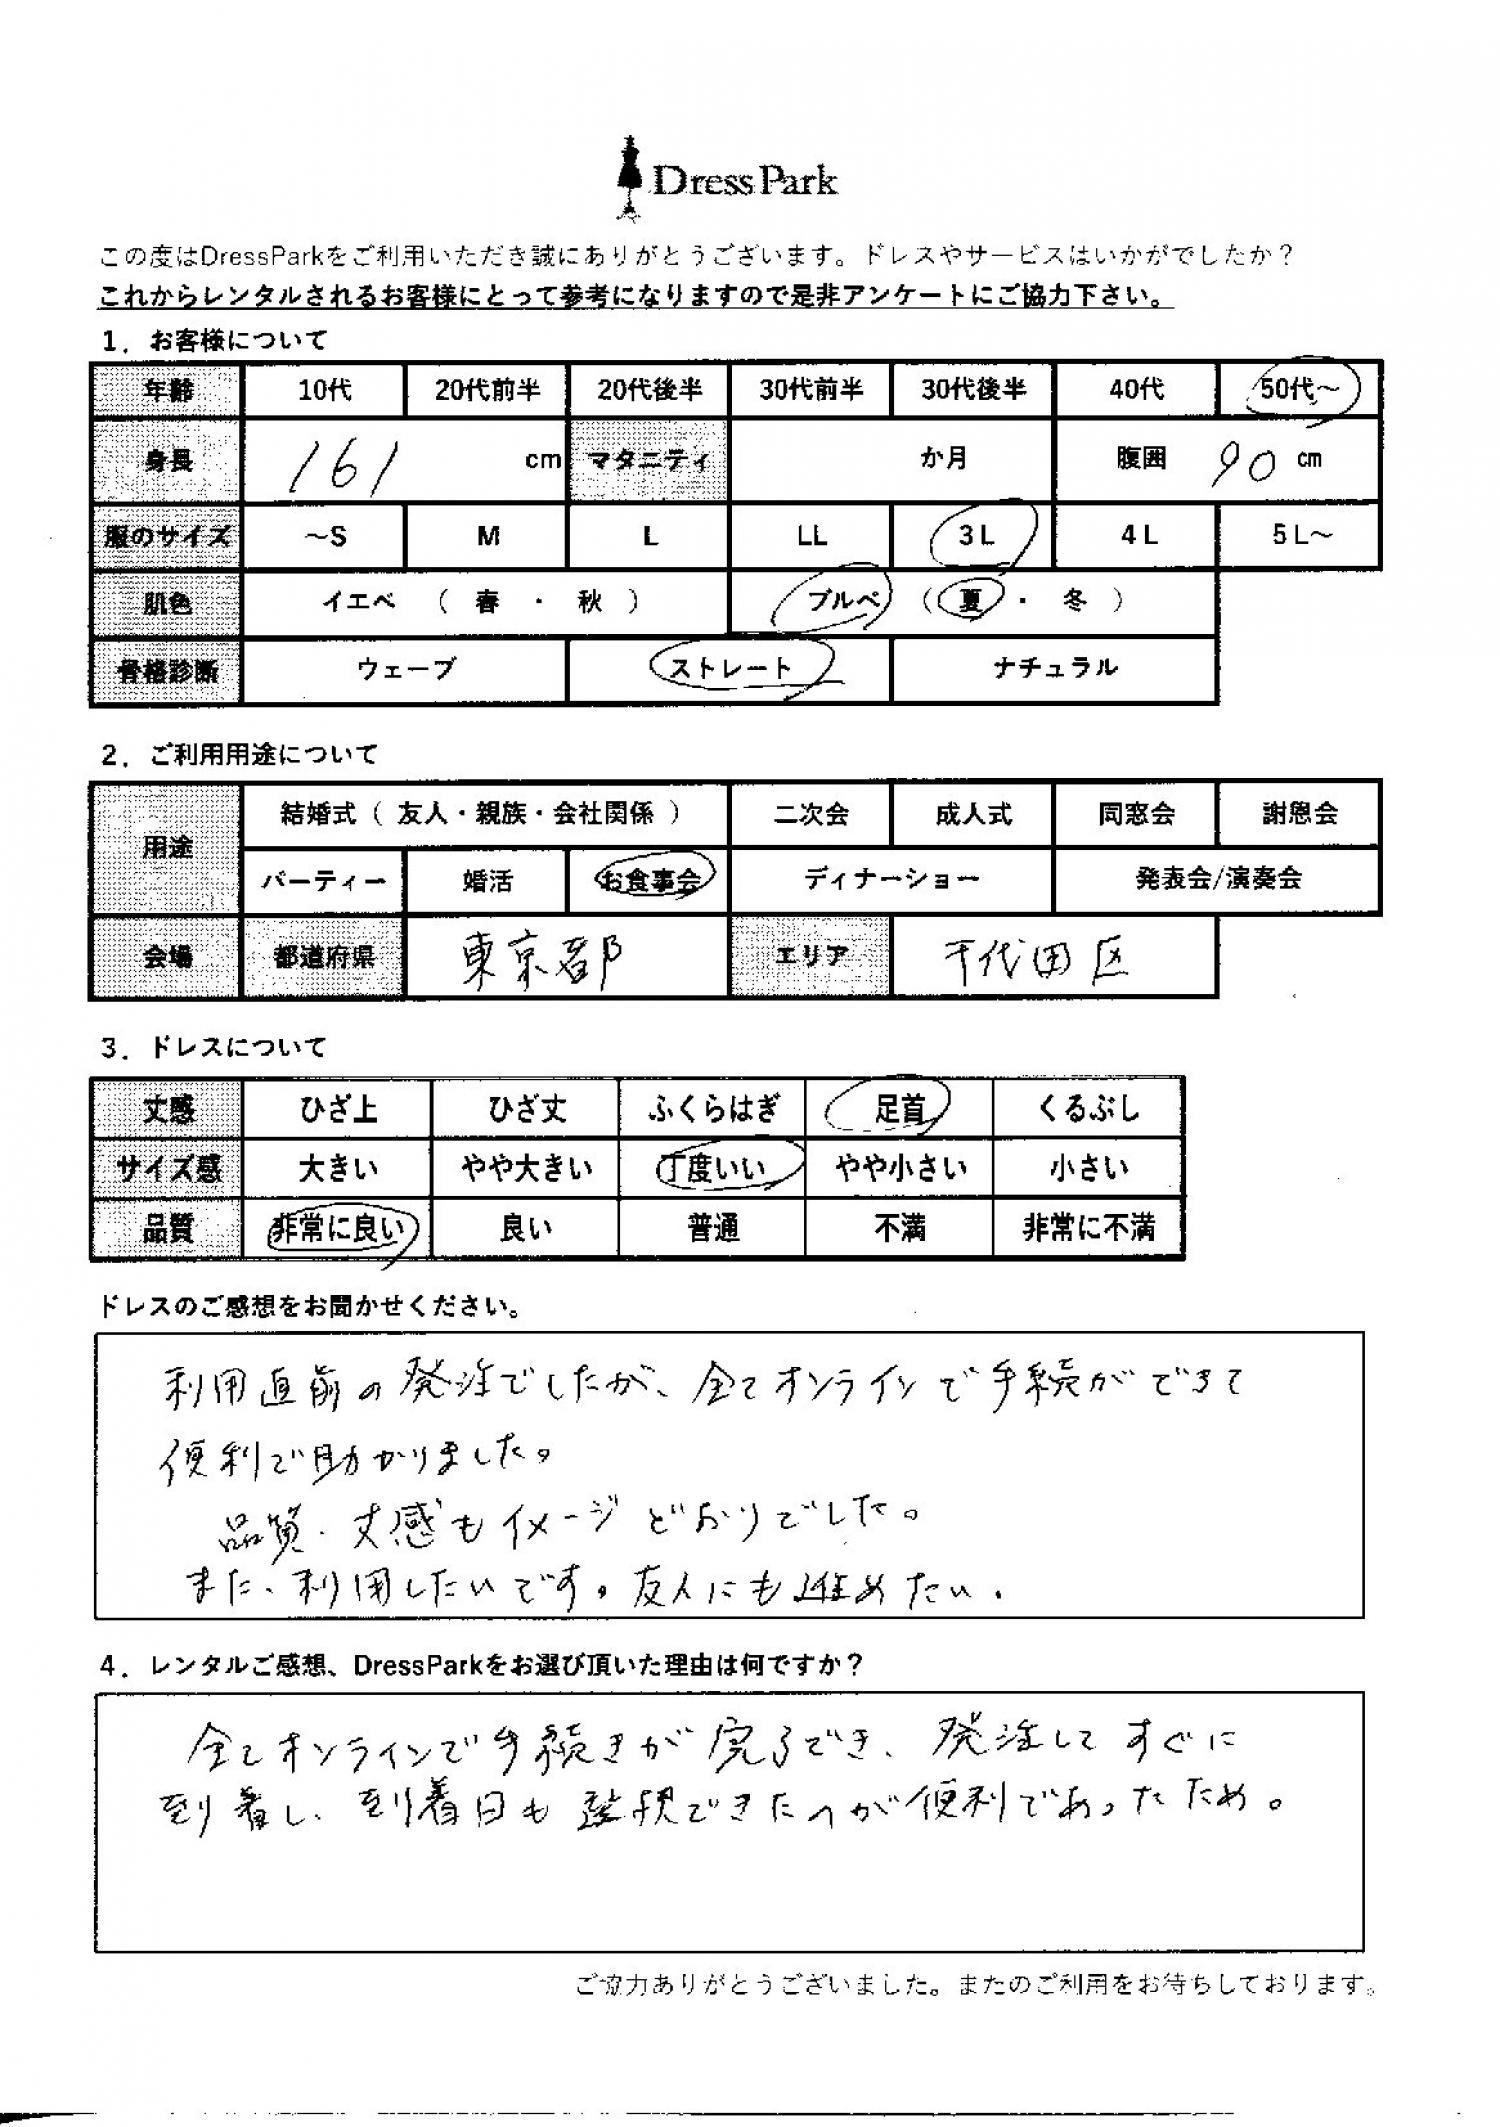 DressPark
この度はDressParkをご利用いただき誠にありがとうございます。ドレスやサービスはいかがでしたか？
これからレンタルされるお客様にとって参考になりますので是非アンケートにご協力下さい。
1．お客様について
年齢 10代 20代前半 20代後半 30代前半 30代後半 40代 50代～
身長 161 cm マタニティ か月 腹囲 90 cm
服のサイズ ～S M L LL 3L 4L 5L～
肌色 イエベ （ 春 ・ 秋 ） ブルベ （ 夏 ・ 冬 ）
骨格診断 ウェーブ ストレート ナチュラル
2．ご利用用途について
用途 結婚式（ 友人・親族・会社関係 ） 二次会 成人式 同窓会 謝恩会
パーティー 婚活 お食事会 ディナーショー 発表会/演奏会
会場 都道府県 東京都 エリア 千代田区
3．ドレスについて
丈感 ひざ上 ひざ丈 ふくらはぎ 足首 くるぶし
サイズ感 大きい やや大きい 丁度いい やや小さい 小さい
品質 非常に良い 良い 普通 不満 非常に不満
ドレスのご感想をお聞かせください。
利用直前の発注でしたが、全てオンラインで手続ができて
便利で助かりました。
品質・丈感もイメージどおりでした。
また、利用したいです。友人にも進めたい.
4．レンタルご感想、DressParkをお選び頂いた理由は何ですか？
全てオンラインで手続きが完了でき、発注してすぐに
到着し、到着日も選択できたのが便利であったため。
ご協力ありがとうございました。またのご利用をお待ちしております。